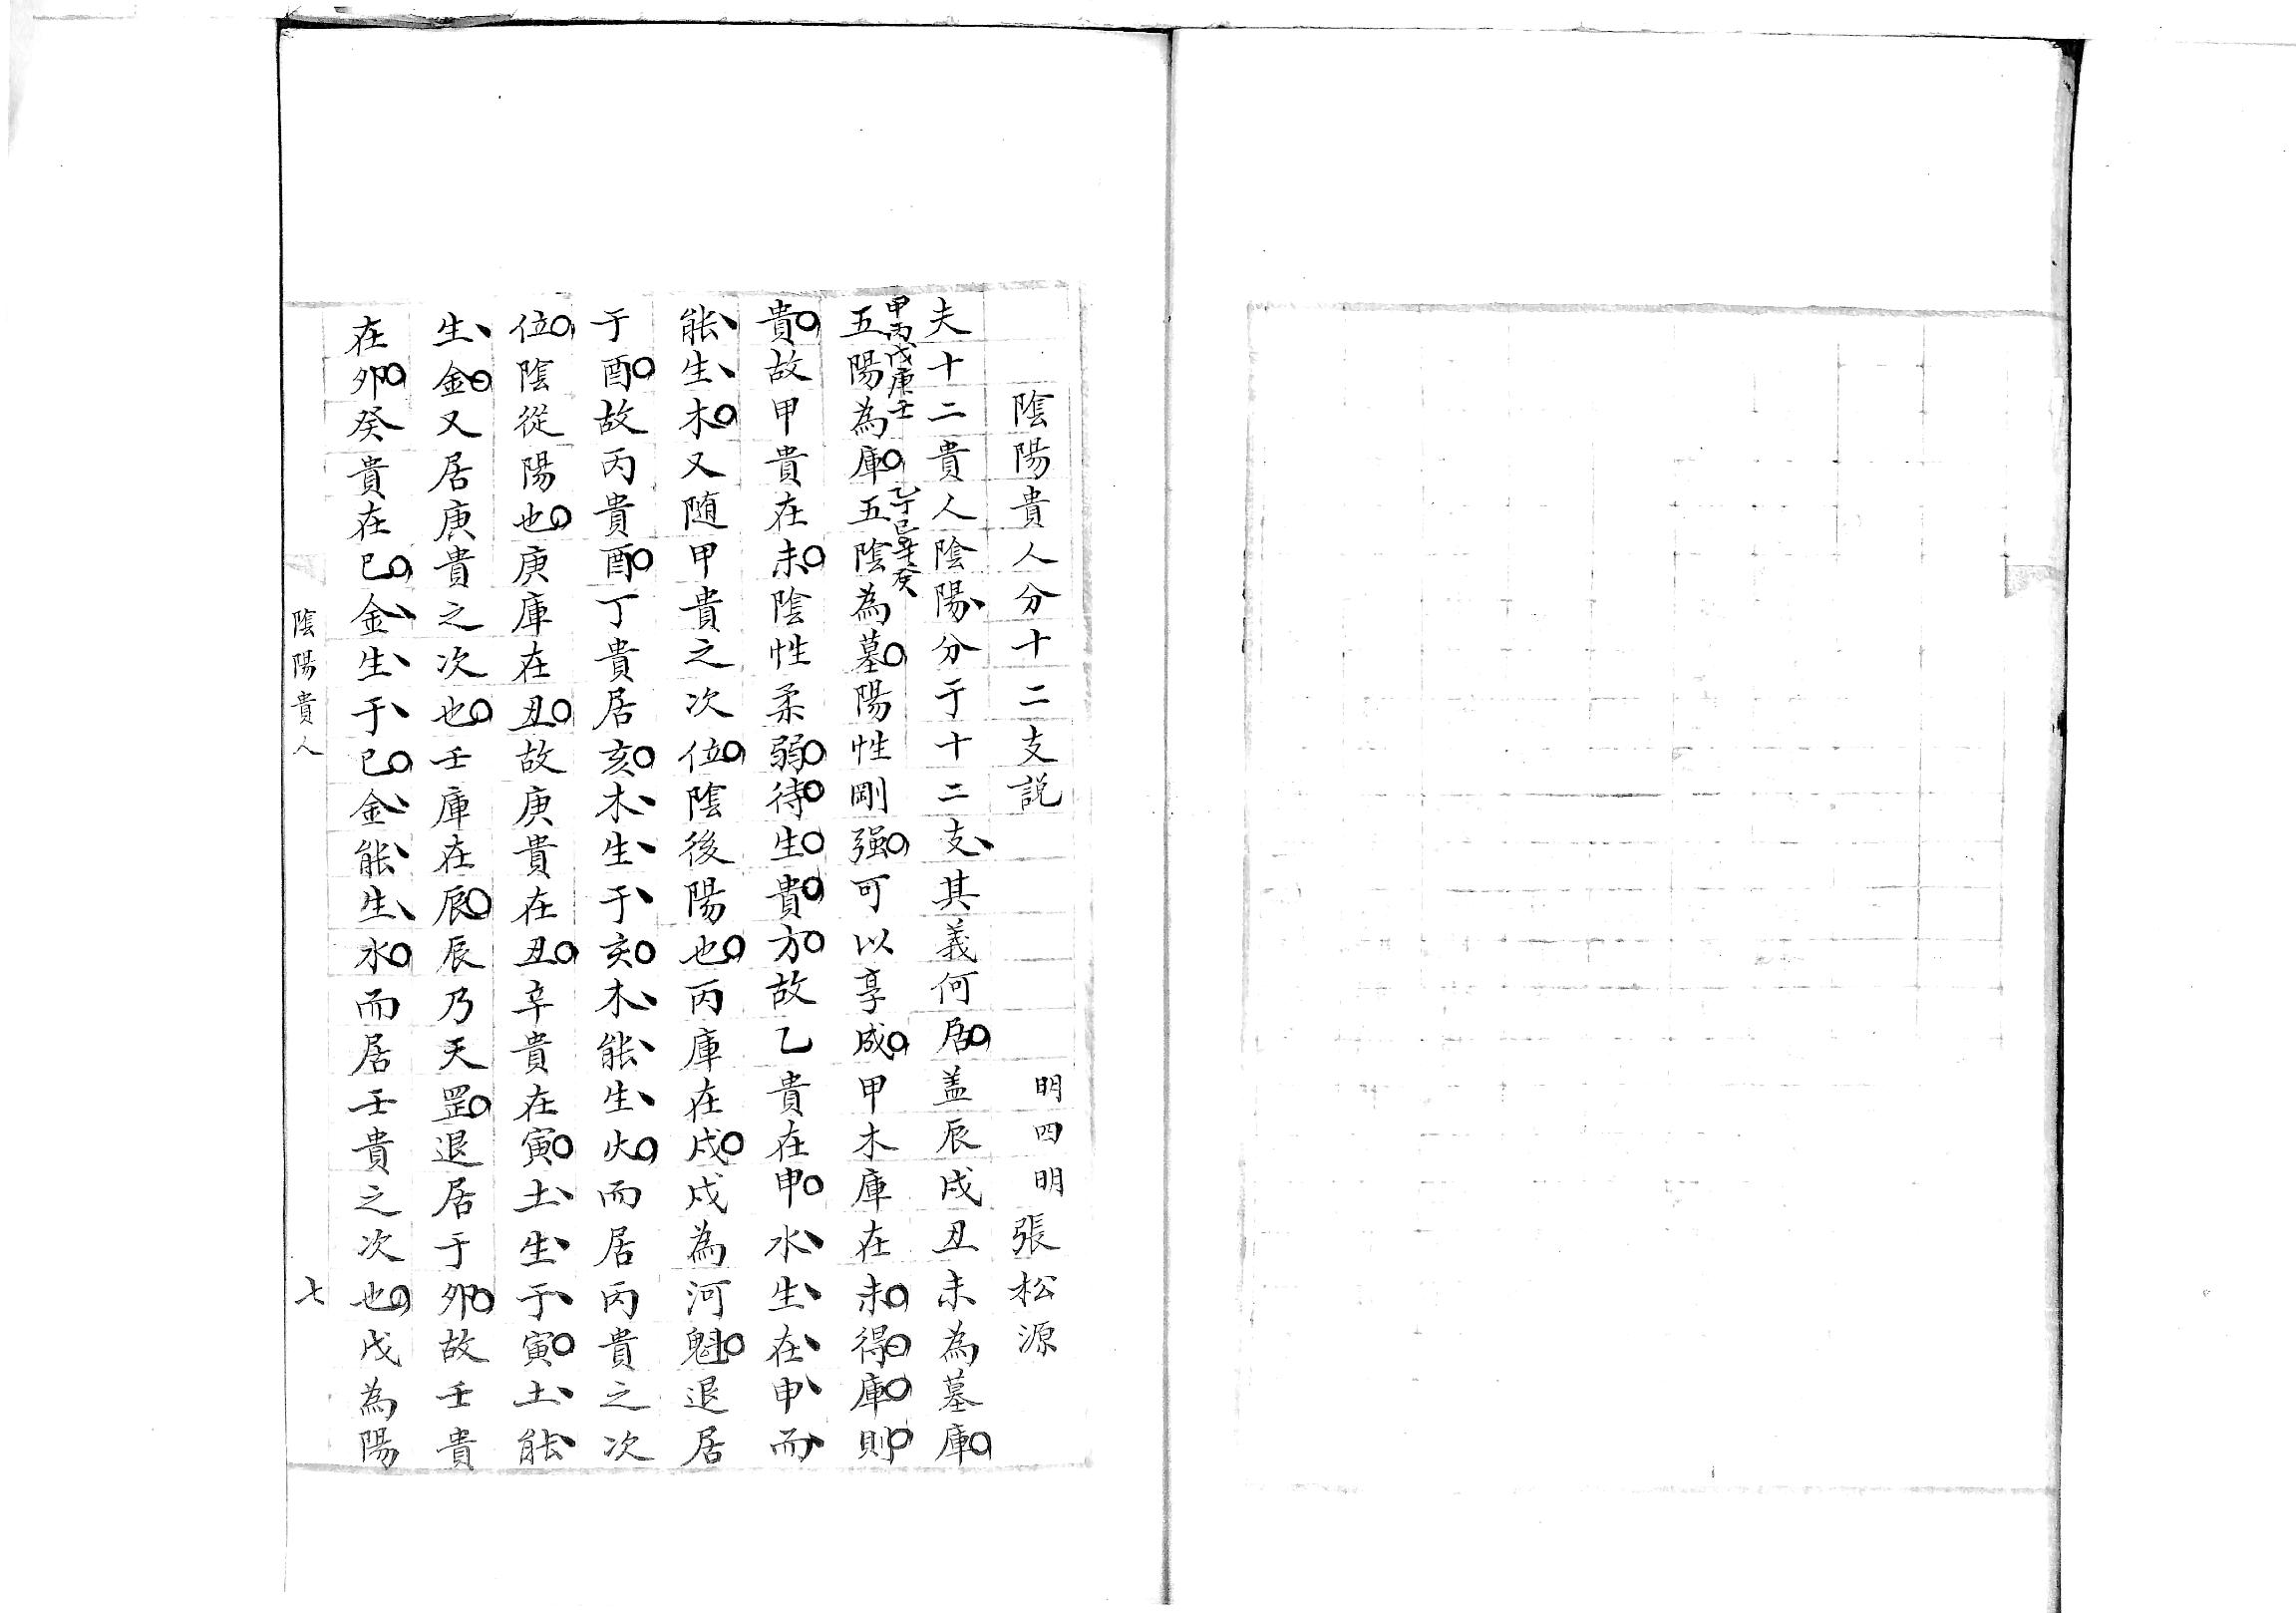 陰陽貴人分十二支説　明四明張松源
夫十二貴人陰陽分于十二支其義何居盖辰戌丑未為墓庫
甲丙戊庚壬
乙丁己辛癸
五陽為庫五陰為墓陽性剛强可以享成甲木庫在未得庫則
貴故甲貴在未陰性柔弱待生貴方故乙貴在申水生在申而
能生木又随甲貴之次位陰後陽也丙庫在戌戌為河魁退居
于酉故丙貴酉丁貴居亥木生于亥木能生火而居丙貴之次
位陰從陽也庚庫在丑故庚貴在丑辛貴在寅土生于寅土能
生金又居庚貴之次也壬庫在辰辰乃天罡退居于卯故壬貴
在卯癸貴在巳金生于巳金能生水而居壬貴之次也戊為陽
陰陽貴人　七